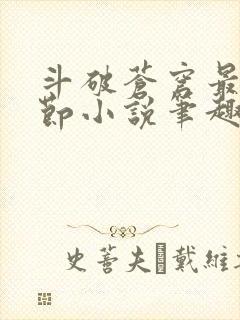 斗破蒼穹最
節小說筆趣
史蒂夫 戴維